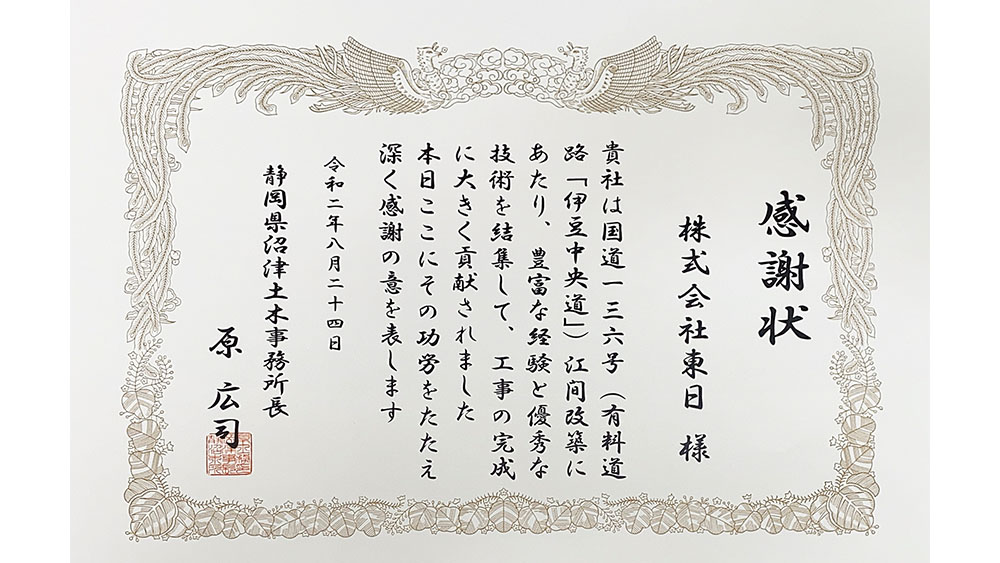 感謝状
株式会社東日 様
貴社は国道一三六号(有料道
路「伊豆中央道」)江间改築に
あたり、豊富な経験と優秀な
技術を結集して、工事の完成
に大きく貢献されました
本日ここにその功労をたたえ
深く感謝の意を表します
令和二年八月二十四日
静岡県沼津土木事務所長
原 広司